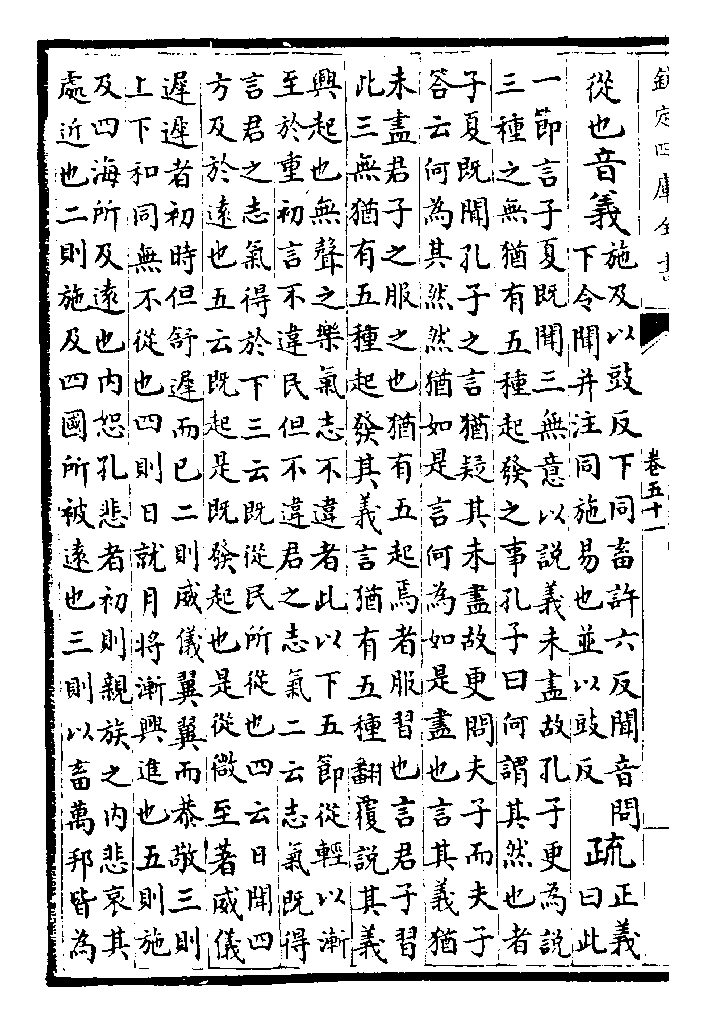 欽定四庫全書 卷五十一
從也音義施及以豉反下同畜許六反聞音問
下令聞并注同施易也並以豉反疏正義
曰此
一節言子夏既聞三無意以說義未盡故孔子更為說
三種之無猶有五種起發之事孔子曰何謂其然也者
子夏既聞孔子之言猶疑其未盡故更問夫子而夫子
答云何為其然然猶如是言何為如是盡也言其義猶
未盡君子之服之也猶有五起焉者服習也言君子習
此三無猶有五種起發其義言猶有五種翻覆說其義
興起也無聲之樂氣志不違者此以下五節從輕以漸
至於重初言不違民但不違君之志氣二云志氣既得
言君之志氣得於下三云既從民所從也四云日聞四
方及於遠也五云既起是既發起也是從微至著威儀
遲遲者初時但舒遲而已二則威儀翼翼而恭敬三則
上下和同無不從也四則日就月將漸興進也五則施
及四海所及遠也內恕孔悲者初則親族之內悲哀其
處近也二則施及四國所被遠也三則以畜萬邦皆為